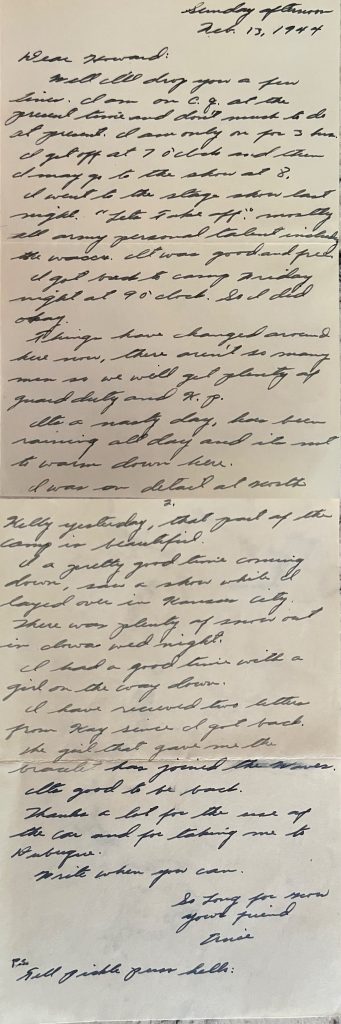 Sunday afternoon
Feb. 13, 1944
Dear Howard:
Well I'll drop you a few
lines. I am on C.Q. at the
present time and don't much to do
at present. I am only on for 3 hrs.
I get off at 7 o'clock and then
I may go to the show at 8.
I went to the stage show last
night. "Lets Take off". mostly
all army personal talent including
the waccs. It was good and free.
I got back to camp Friday
night at 9 o'clock. So I did
okay.
Things have changed around
here now, there aren't so many
men so we will get plenty of
guard duty and K.p.
Its a nasty day, has been
raining all day and its not
to warm down here.
I was on detail at north
2.
Kelly yesterday, that part of the
camp is beautiful.
I a pretty good time coming
down, saw a show while I
layed over in Kansas City.
There was plenty of snow out
in Iowa wed night.
I had a good time with a
girl on the way down.
I have recieved two letters
from Kay since I got back.
the girl that gave me the
bracelet has joined the Waves.
Its good to be back.
Thanks a lot for the use of
the car and for taking me to
Dubuque.
Write when you can.
So Long for now
your friend
Ernie
P.S.
Tell pickle puss hello.